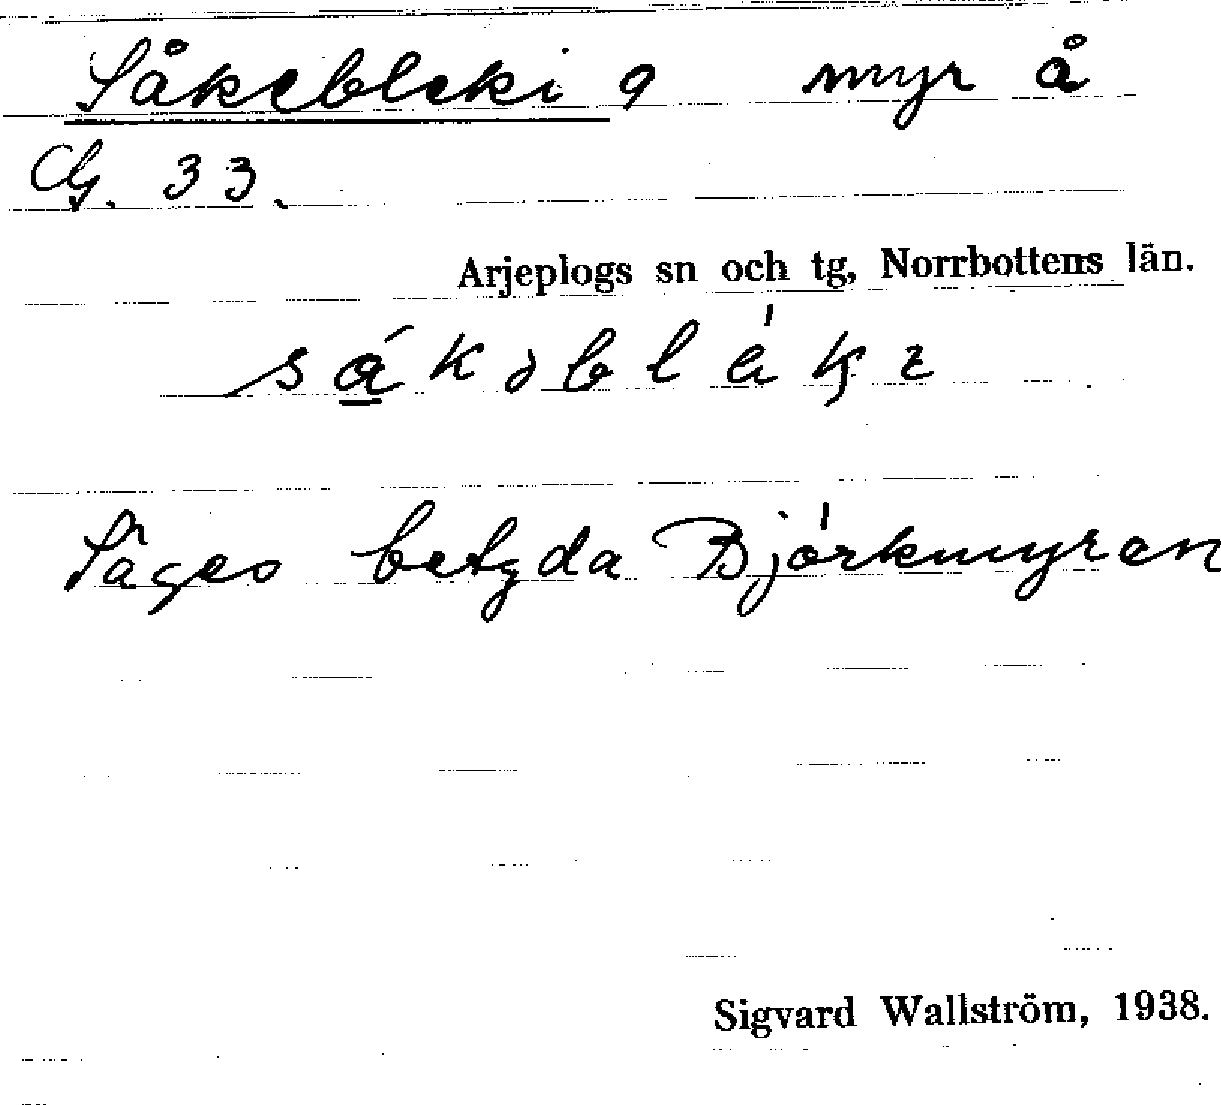 Såkebleki 9 myr å
G. 33.
Arjeplogs sn och tg, Norrbottens län.
Säges betyda Björkmyran
Sigvard Wallström, 1938.